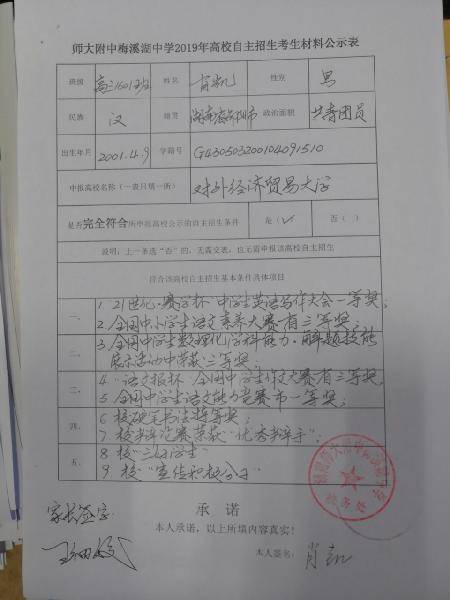 师大附中梅溪湖中学2019年高校自主招生考生材料公示表
班级 高三1601班 姓名 肖凯 性别 男
民族 汉 籍贯 湖南省邵阳市 政治面貌 共青团员
出生年月 2001.4.9 学籍号 G430503200104091510
申报高校名称（一表只填一所） 对外经济贸易大学
是否完全符合所申报高校公示的自主招生条件 是（✓） 否（ ）
说明：上一条选“否”的，无需交表，也无需申报该高校自主招生
符合该高校自主招生基本条件具体项目
一、 1. 21世纪·赛学杯 中学生英语写作大会一等奖；
2. 全国中小学生语文素养大赛省三等奖；
二、 3. 全国中学生数理化学科能力·解题技能
展示活动中荣获三等奖；
三、 4. “语文报杯”全国中学生作文大赛省三等奖；
5. 全国中学生语文能力竞赛市一等奖；
四、 6 校硬笔书法特等奖；
7. 校辩论赛荣获“优秀辩手”；
五、 8. 校“三好学生”
9. 校“宣传积极分子”
承 诺
家长签字：
本人承诺，以上所填内容真实！
本人签名： 肖凯